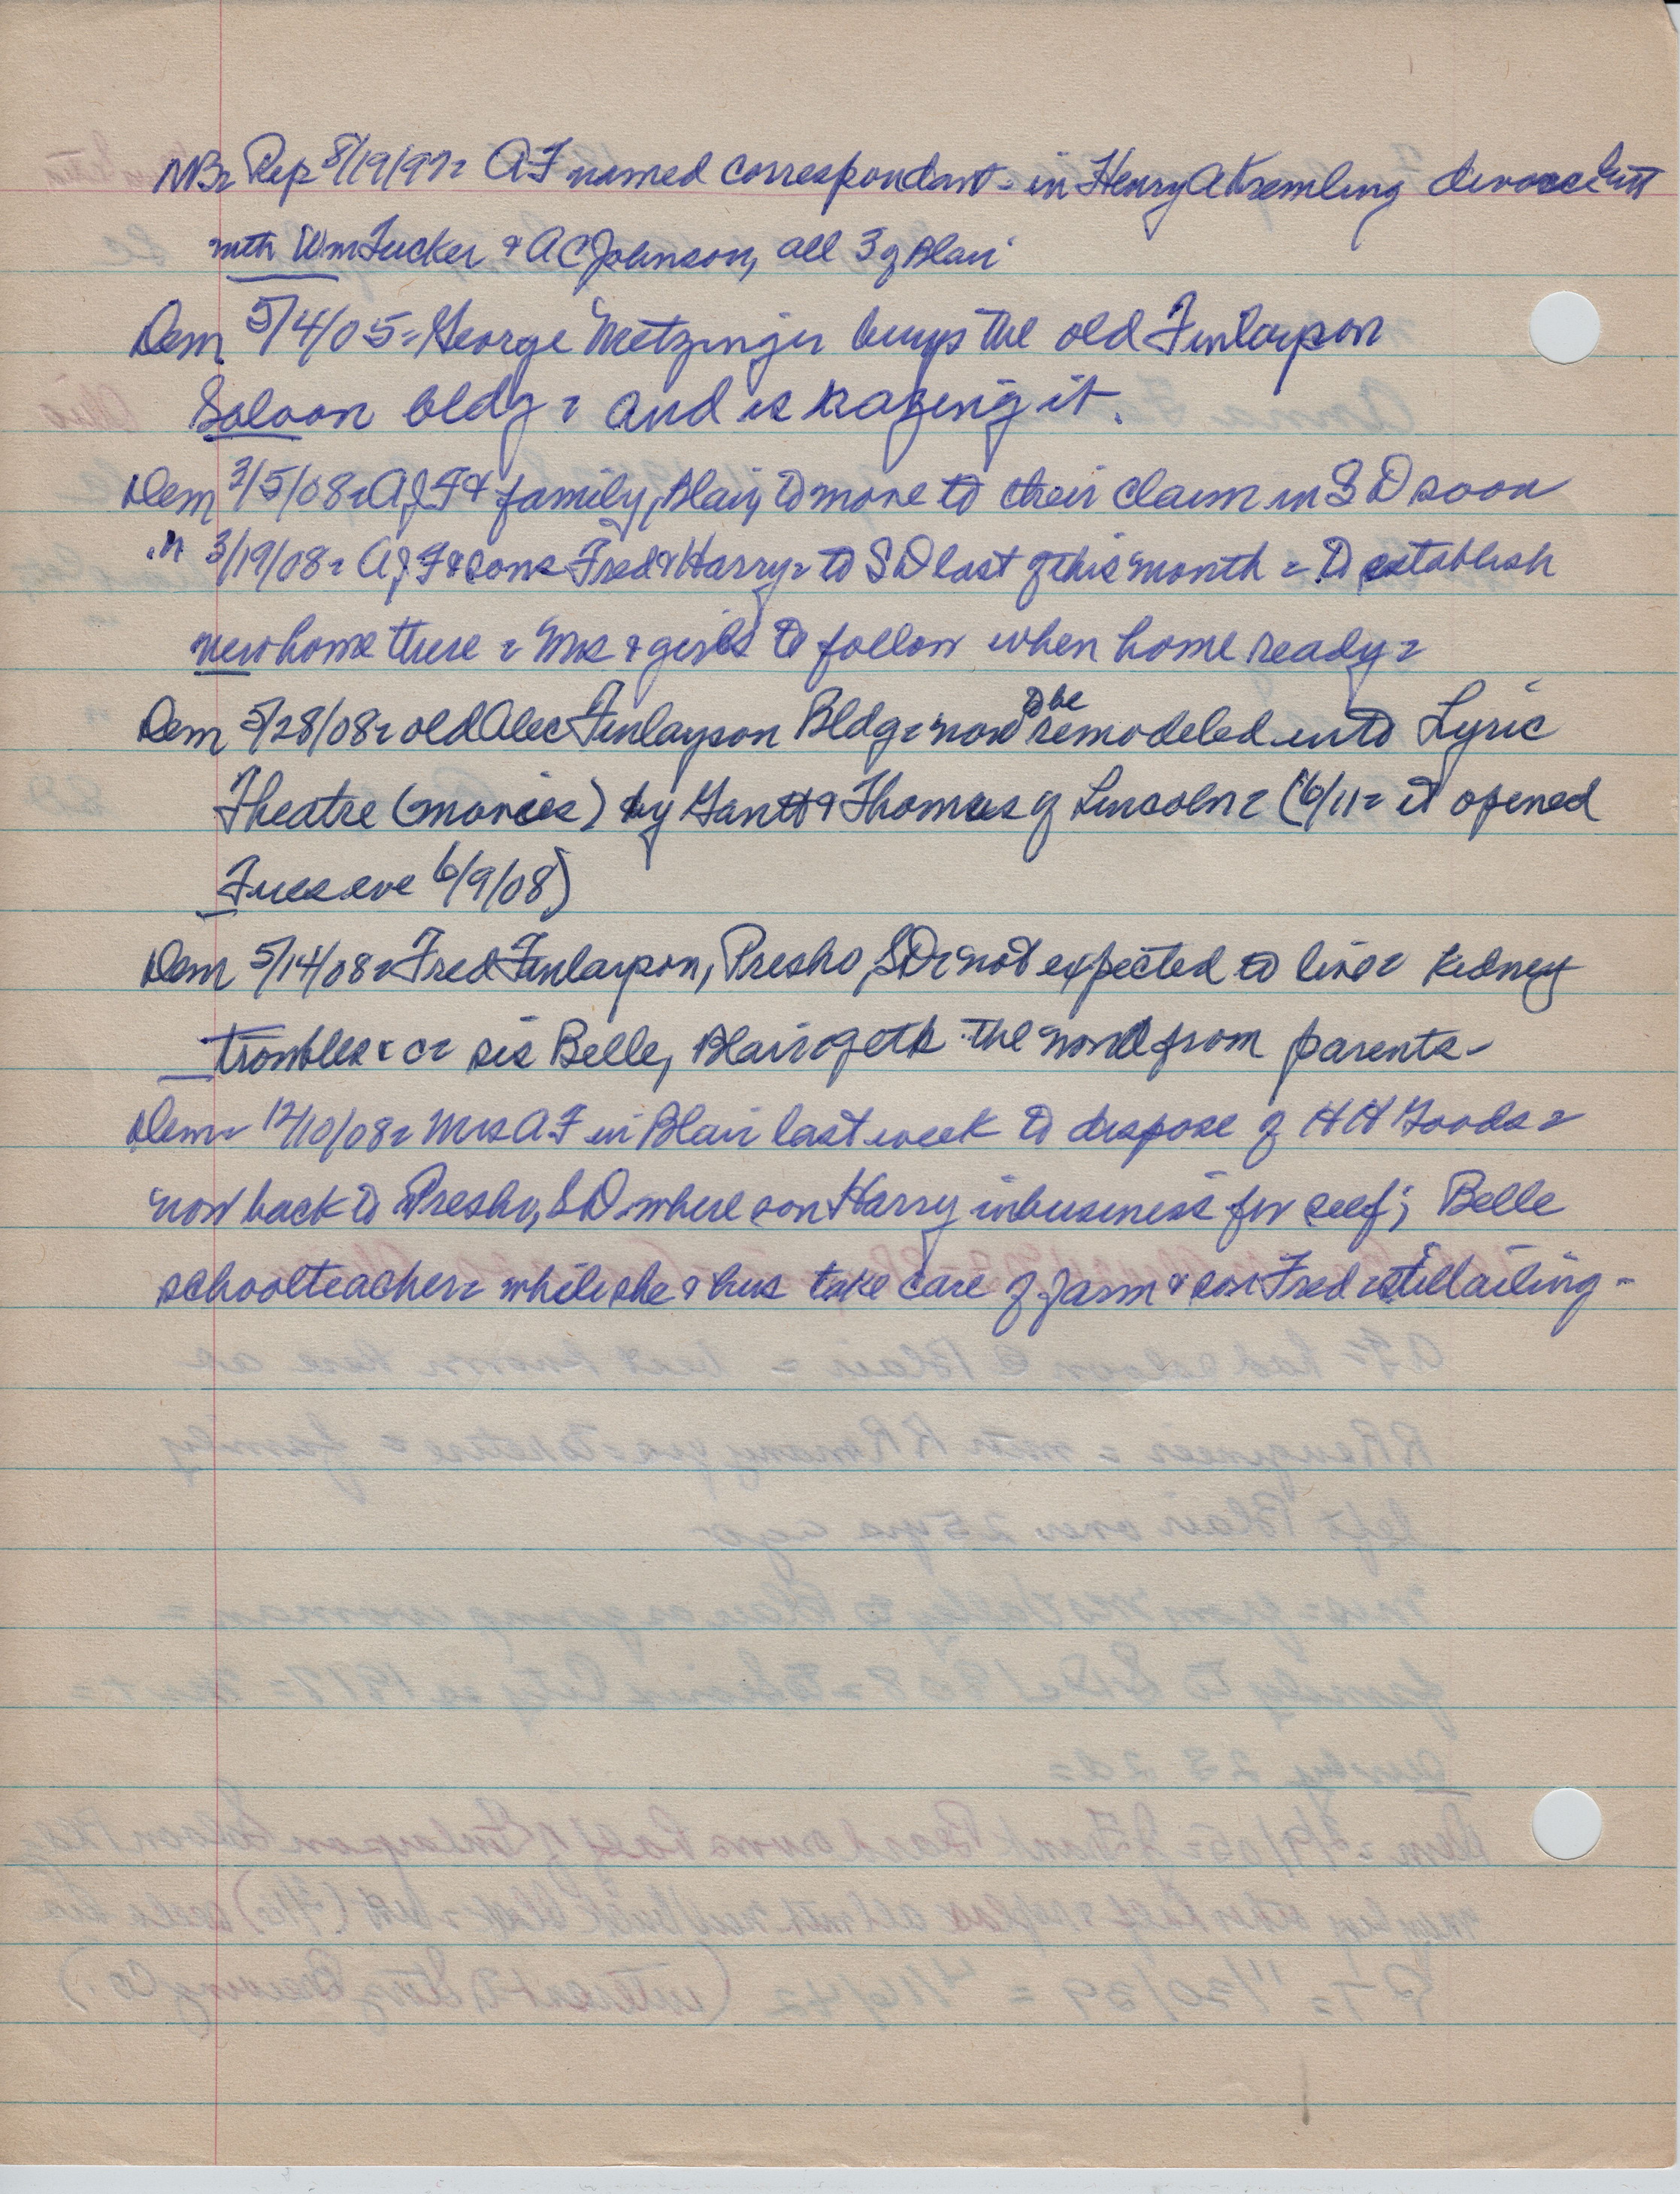 NB= Rep 8/19/97= AF named correspondant - in Henry A Kremling divorce suit
with Wm Tucker & AC Johnson, all 3 of Blair
Dem 5/4/05= George Metzinger buys the old Finlayson
Saloon bldg = and is razing it.
Dem 3/5/08= AJF & family, Blair, to move to their claim in SD soon
" 3/19/08= AJF & sons Fred & Harry= to SD last of this month = to establish
new home there = Mrs & girls to follow when home ready=
Dem 5/28/08= old Alec Finlayson Bldg= now to be remodeled into Lyric
Theatre (movies) by Gantt & Thomas of Lincoln= (6/11= it opened
Tues eve 6/9/08)
Dem 5/14/08= Fred Finlayson, Presho, SD= not expected to live= kidney
troubles &c= sis Belle, Blair= gets the word from parents-
Dem= 12/10/08= Mrs AF in Blair last week to dispose of HH Goods=
now back to Presho, SD where son Harry in business for self; Belle
schoolteacher= while she & hus take care of farm & son Fred still ailing-